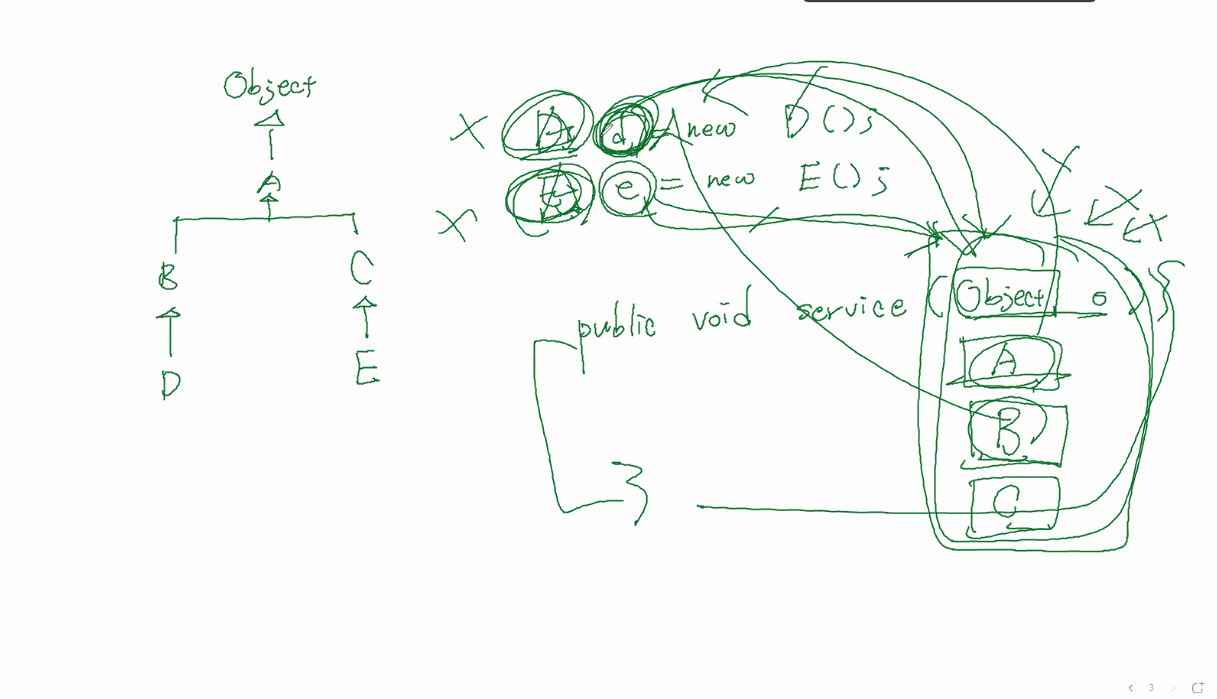 Object
A
B
C
D
E
d = new D();
e = new E();
public void service (Object o) {
A
B
C
}
3